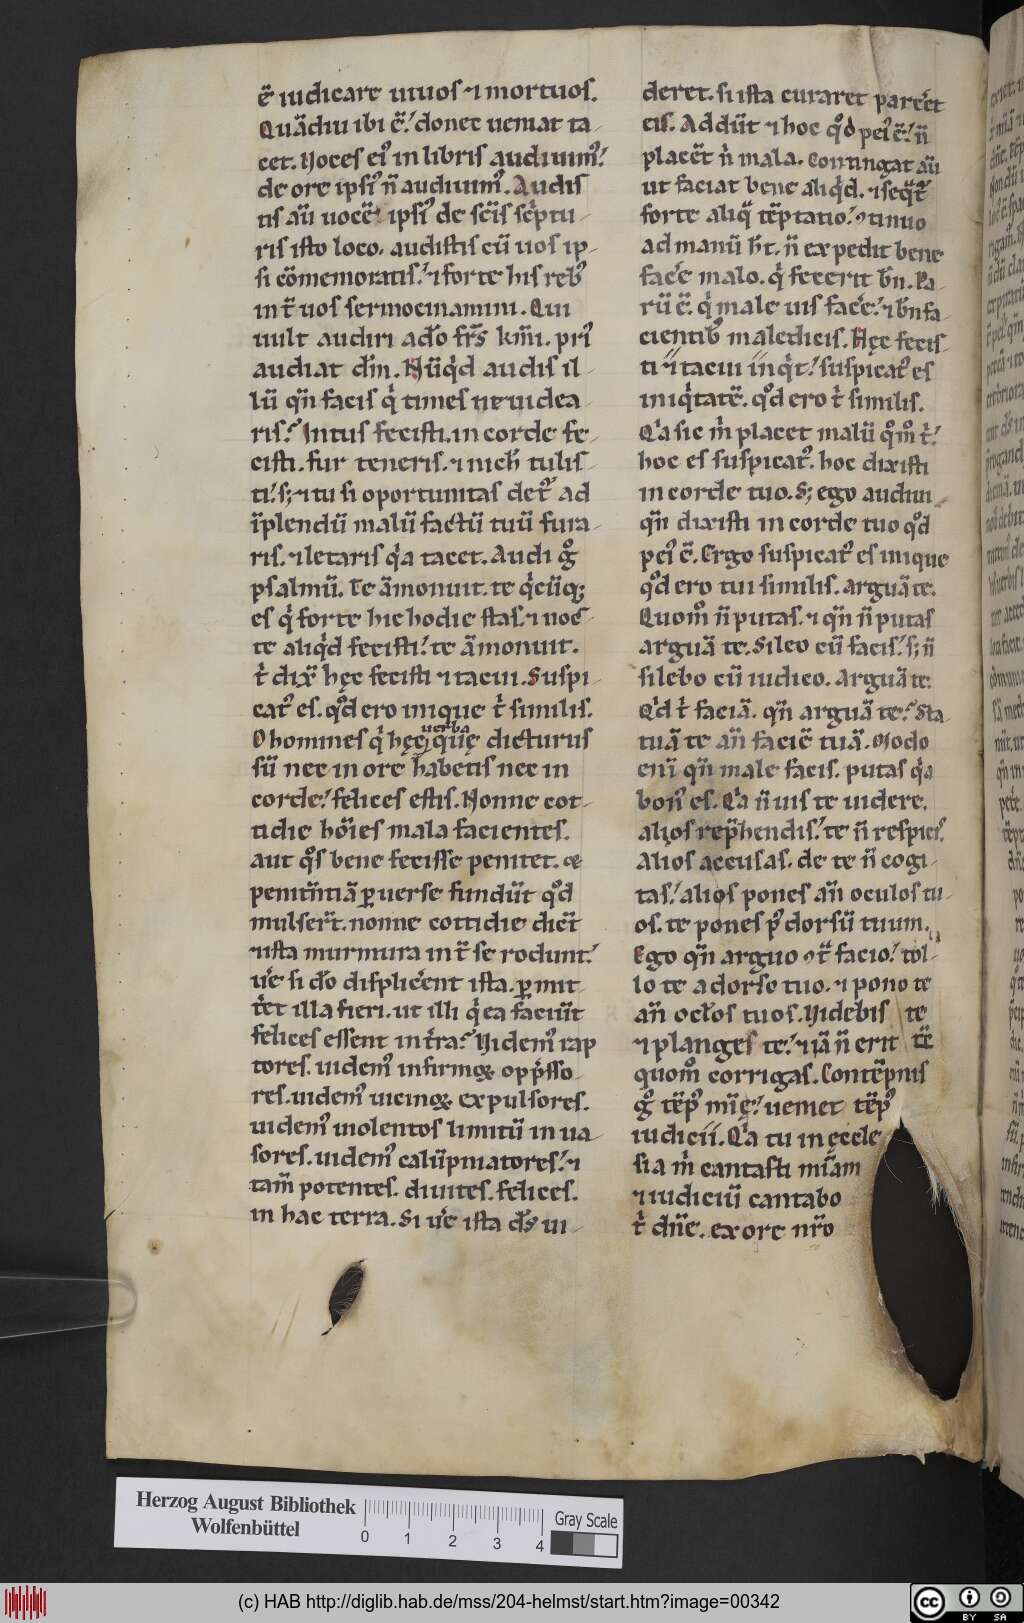 ē iudicare uiuos ⁊ mortuos.
Quādiu ibi ē? donec ueniat ta-
cet. Uoces eiꝰ in libris audiuimꝰ?
de ore ipsiꝰ n̄ audiuimꝰ. Audis
tis aū uocē ipsiꝰ de scīs scptu-
ris isto loco. audistis cū uos ip-
si cōmemoratis? ⁊ forte his rebꝰ
int̄ uos sermocinamini. Qui
uult audiri a do fr̄s km̄i. priꝰ
audiat dm̄. Nūqd audis il-
lū qn̄ facis q times ne uidea-
ris? Intus fecisti. in corde fe-
cisti. fur teneris. ⁊ nich tulis-
ti? s; ⁊ tu si oportunitas det ad
īplendū malū factū tuū fura-
ris. ⁊ letaris qa tacet. Audi g̊
psalmū. Te āmonuit. te qcūq;
es q forte hic hodie stas. ⁊ noc-
te aliqd fecisti? te āmonuit.
t dix̄ hęc fecisti ⁊ tacui. Suspi-
catꝰ es. qd ero inique t similis.
O homines q hęc uerba quę dicturus
sū nec in ore habetis nec in
corde? felices estis. Nonne cot-
tidie hōies mala facientes.
aut qs bene fecisse penitet. ꝙ
penitn̄tiā ꝑuerse fundūt qd
mulsert̄. nonne cottidie dict̄
⁊ ista murmura int̄ se rodunt?
ue si do displicent ista. ꝑmit
tet illa fieri. ut illi q ea faciūt
felices essent in tra? Uidemꝰ rap
tores. uidemꝰ infirmoꝝ oppsso-
res. uidemꝰ uicinoꝝ expulsores.
uidemꝰ uiolentos limitū inua-
sores. uidemꝰ calūpniatores? ⁊
tam̄ potentes. diuites. felices.
in hac terra. Si ue ista ds ui-
deret. si ista curaret parcet
eis. Addūt ⁊ hoc qd peiꝰ ē? n̄
placēt n mala. Contingat aū
ut faciat bene aliqd. ⁊ seqt̄
forte aliq̄ tēptatio? ꝯtinuo
ad manū ht. n̄ expedit bene
face malo. q fecerit bn̄. Pa-
rū ē. q male uis face? ⁊ bn̄ fa-
cientibꝰ maledicis. Hęc fecis-
ti ⁊ tacui inqt? suspicatꝰ es
iniqtatē. qd ero t similis.
Qa sic m placet malū qm̊ t?
hoc es suspicatꝰ. hoc dixisti
in corde tuo. S; ego audiui
qn̄ dixisti in corde tuo qd
peiꝰ ē. Ergo suspicatꝰ es inique
qd ero tui similis. arguā te.
Quom̊ n̄ putas. ⁊ qn̄ n̄ putas
arguā te. Sileo cū facis? s; n̄
silebo cū iudico. Arguā te.
Qd t faciā. qn̄ arguā te? Sta-
tuā te an̄ faciē tuā. Modo
enī qn̄ male facis. putas qa
bonꝰ es. Qa n̄ uis te uidere.
alios rephendis? te n̄ respicis?
Alios accusas. de te n̄ cogi-
tas? alios pones an̄ oculos tu-
os. te pones p dorsū tuum.
Ego qn̄ arguo ꝯt̄ facio? tol-
lo te a dorso tuo. ⁊ pono te
an̄ oclos tuos. Uidebis te
⁊ planges te? ⁊ iā n̄ erit tē
quom̊ corrigas. Contēpnis
g̊ tēpꝰ mīę? ueniet tēpꝰ
iudicii. Qa tu in ęccle
sia m cantasti mīam
⁊ iudiciū cantabo
t dn̄e. ex ore nr̄o
Herzog August Bibliothek
Wolfenbüttel
0 1 2 3 4
Gray Scale
(c) HAB http://diglib.hab.de/mss/204-helmst/start.htm?image=00342
cc BY SA